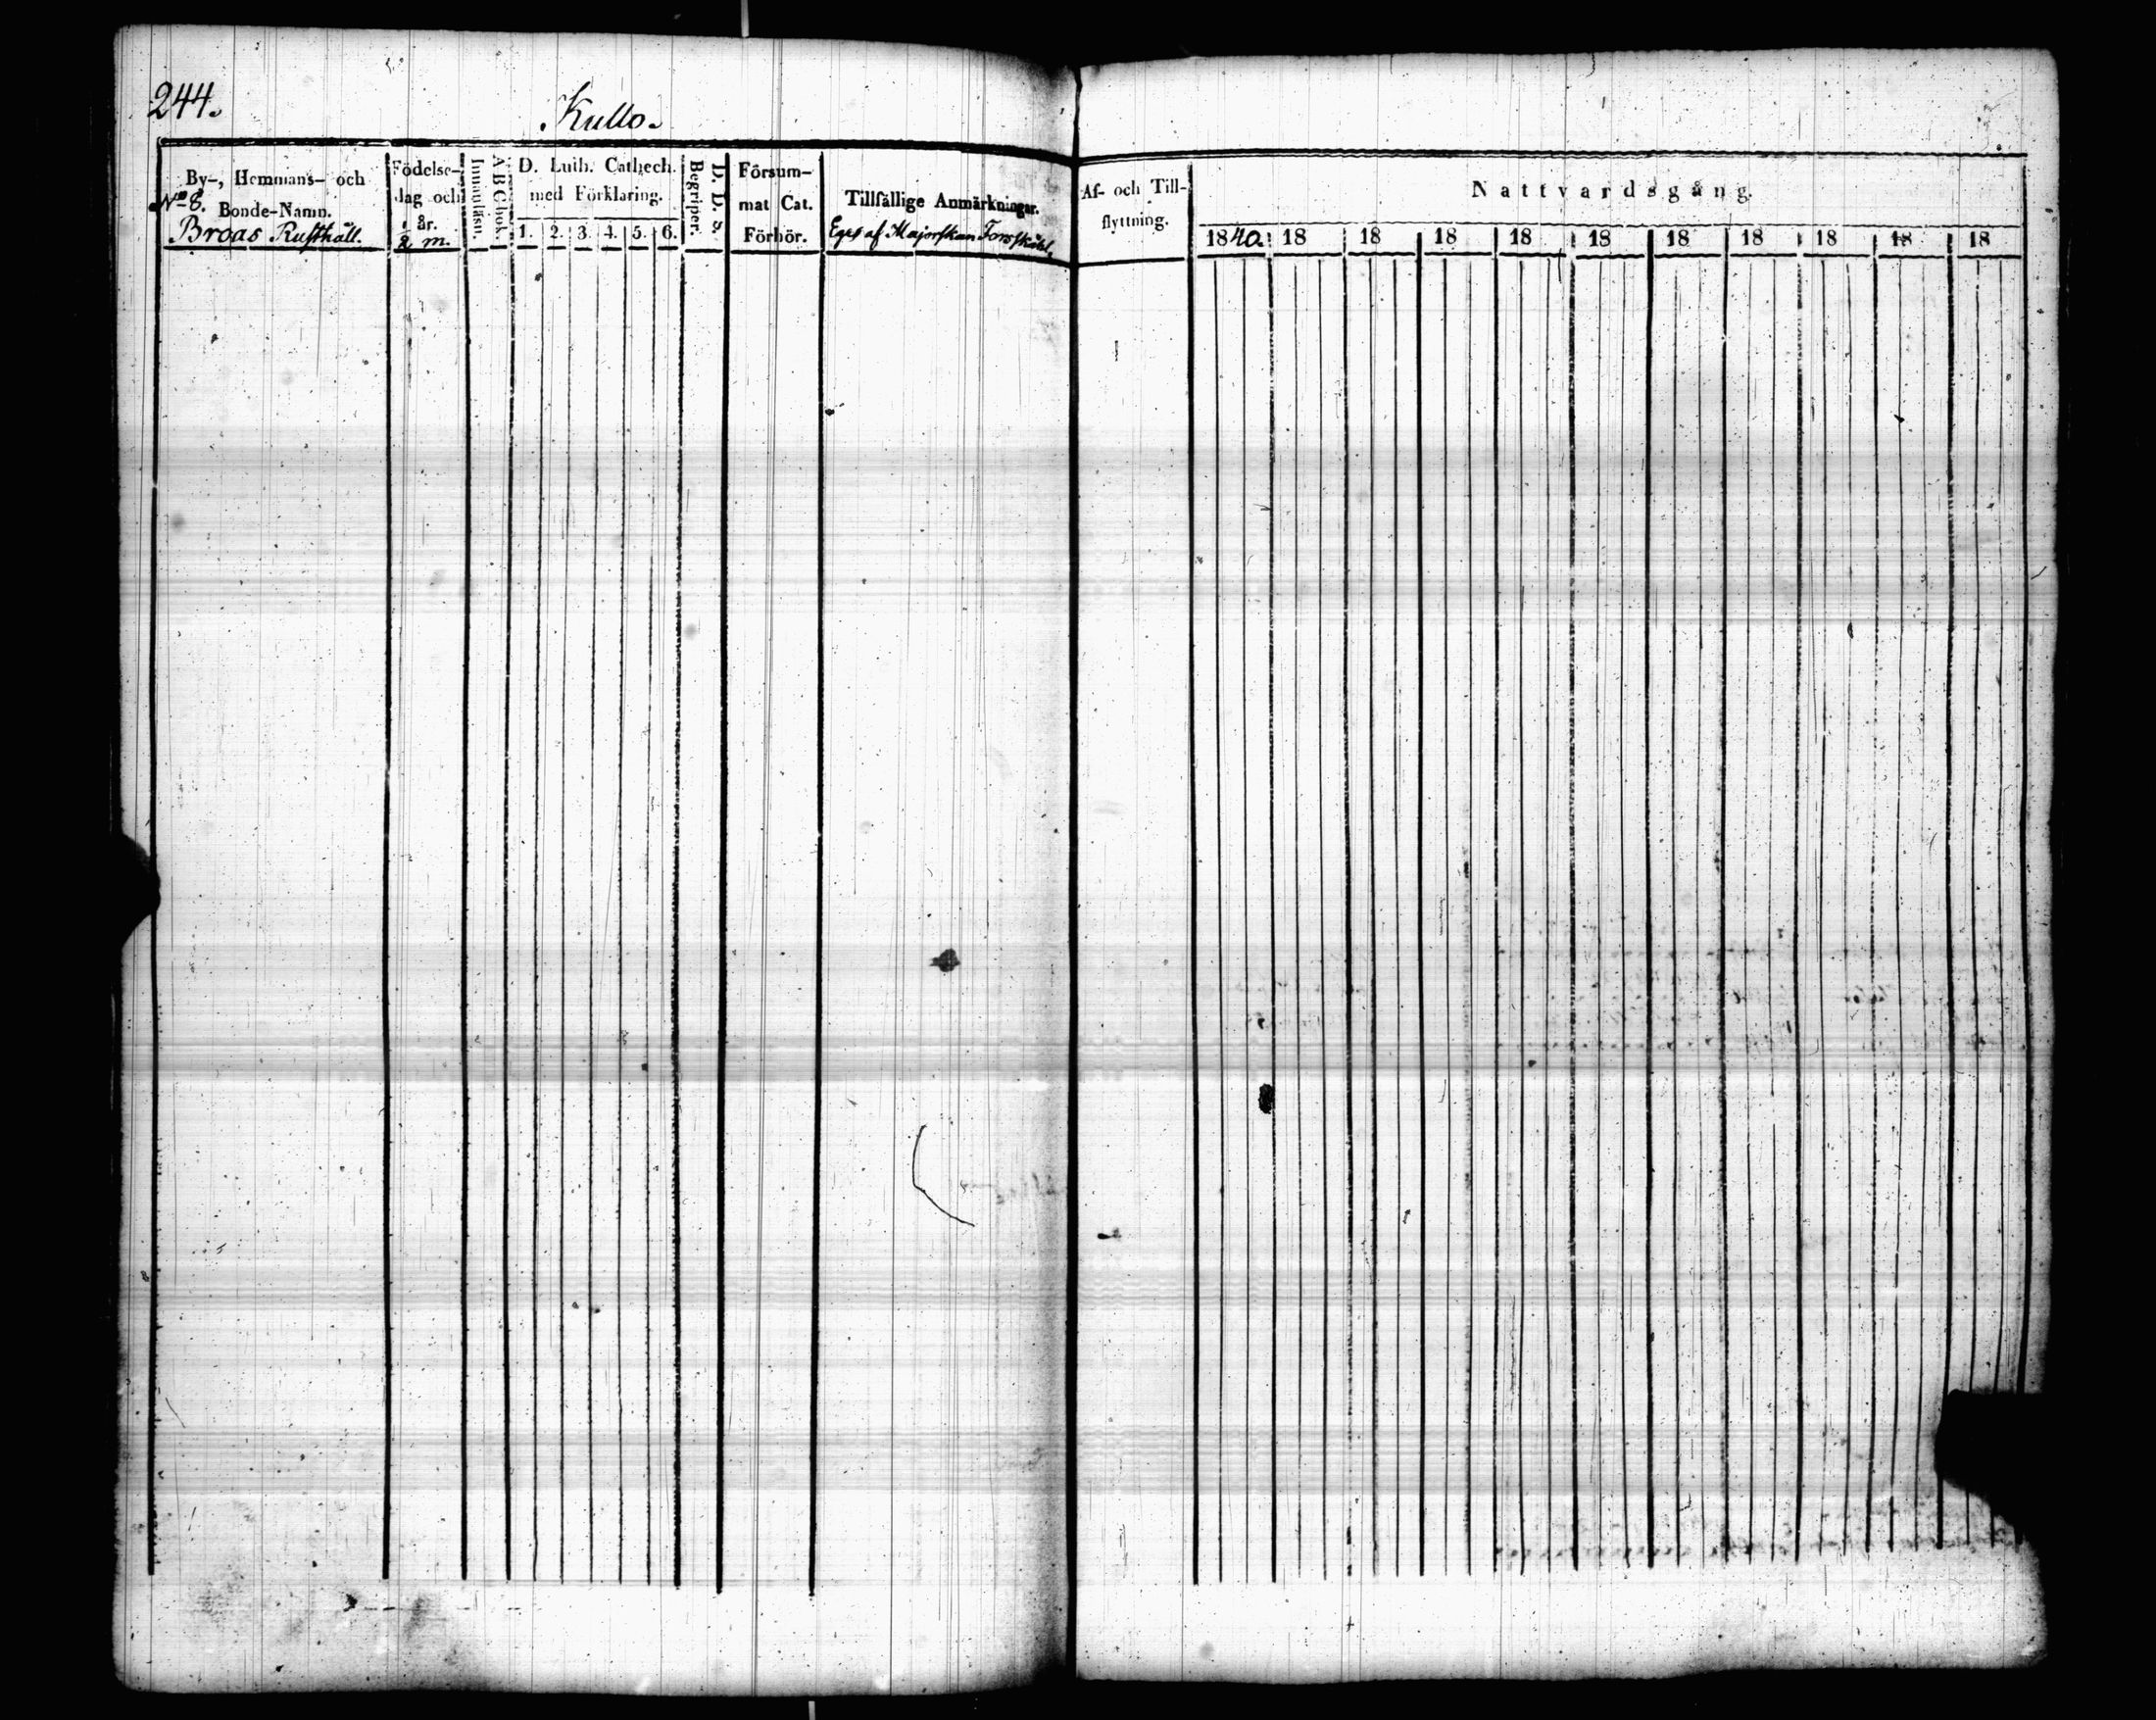 244.
Kullo.
By-, Hemmans- och
Nº 8.
Bonde-Namn.
Broas Rusthåll.
Födelse-
dag och
år.
1/2 m.
Innanläsn.
A B C bok.
D. Luth. Cathech.
med Förklaring.
1. 2. 3. 4. 5. 6.
Begriper.
D. D. S.
Försum-
mat Cat.
Förhör.
Tillfällige Anmärkningar.
Eges af Majorskan Forsskåhl.
Af- och Till-
flyttning.
Nattvardsgång.
1840. 18 18 18 18 18 18 18 18 18 18